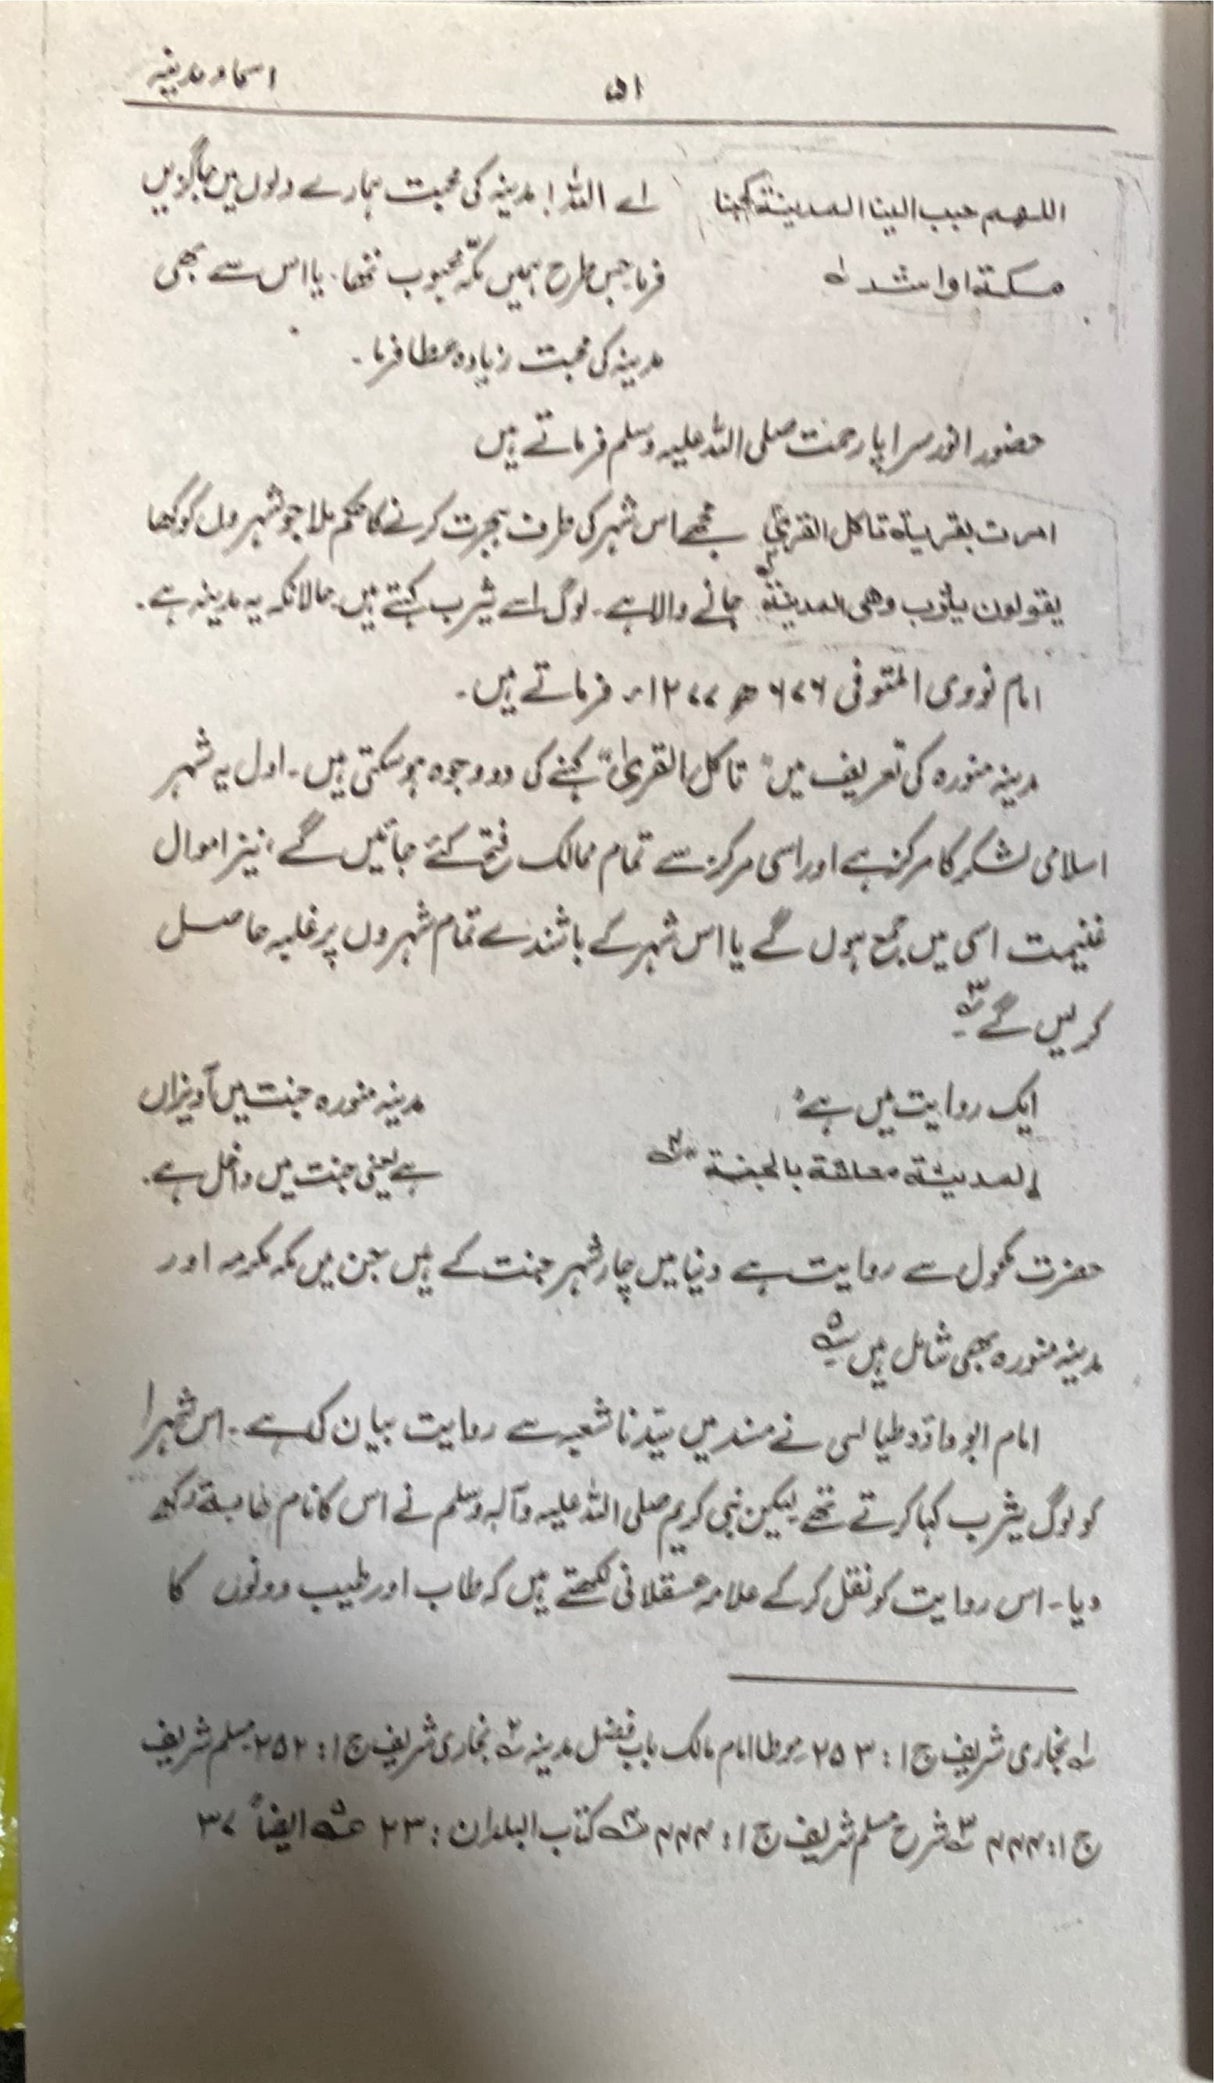 اسماء مدینہ
۵۱
اللهم حبب الینا المدینة کحبنا اے اللہ! مدینہ کی محبت ہمارے دلوں میں جاگزیں
مکة او اشد ۱؎ فرما جس طرح ہمیں مکّہ محبوب تھا۔ یا اس سے بھی
مدینہ کی محبت زیادہ عطا فرما۔
حضور انور سراپا رحمت صلی اللہ علیہ وسلم فرماتے ہیں
امرت بقریة تاکل القریٰ مجھے اس شہر کی طرف ہجرت کرنے کا حکم ملا جو شہروں کو کھا
یقولون یثرب وهی المدینة ۲؎ جانے والا ہے۔ لوگ اسے یثرب کہتے ہیں حالانکہ یہ مدینہ ہے۔
امام نووی المتوفی ۶۷۶ ھ ۱۲۷۷ء فرماتے ہیں۔
مدینہ منورہ کی تعریف میں "تاکل القریٰ" کہنے کی دو وجوہ ہو سکتی ہیں۔ اول یہ شہر
اسلامی لشکر کا مرکز ہے اور اسی مرکز سے تمام ممالک فتح کئے جائیں گے، نیز اموال
غنیمت اسی میں جمع ہوں گے یا اس شہر کے باشندے تمام شہروں پر غلبہ حاصل
کر لیں گے ۳؎
ایک روایت میں ہے: مدینہ منورہ جنت میں آویزاں
المدینة معلقة بالجنة ۴؎ ہے یعنی جنت میں داخل ہے۔
حضرت مکحول سے روایت ہے دنیا میں چار شہر جنت کے ہیں جن میں مکہ مکرمہ اور
مدینہ منورہ بھی شامل ہیں ۵؎
امام ابو داؤد طیالسی نے مسند میں سیّدنا شعبہ سے روایت بیان کی ہے۔ اس شہر
کو لوگ یثرب کہا کرتے تھے لیکن نبی کریم صلی اللہ علیہ وآلہ وسلم نے اس کا نام طابة رکھ
دیا۔ اس روایت کو نقل کر کے علامہ عسقلانی لکھتے ہیں کہ طاب اور طیب دونوں کا
۱؎ بخاری شریف ج ۱: ۲۵۳ موطا امام مالک باب فضل مدینہ ۲؎ بخاری شریف ج ۱: ۲۵۲ مسلم شریف
ج ۱: ۴۴۴ ۳؎ شرح مسلم شریف ج ۱: ۴۴۴ ۴؎ کتاب البلدان: ۲۳ ۵؎ ایضاً ۳۷